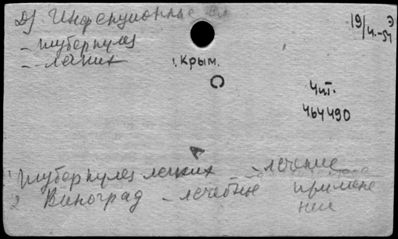 Инфекционные
19/
– туберкулез
– легких
г. Крым.
Чит.
464490
1 Туберкулез легких – лечение
2 Виноград – лечебное примене
ние